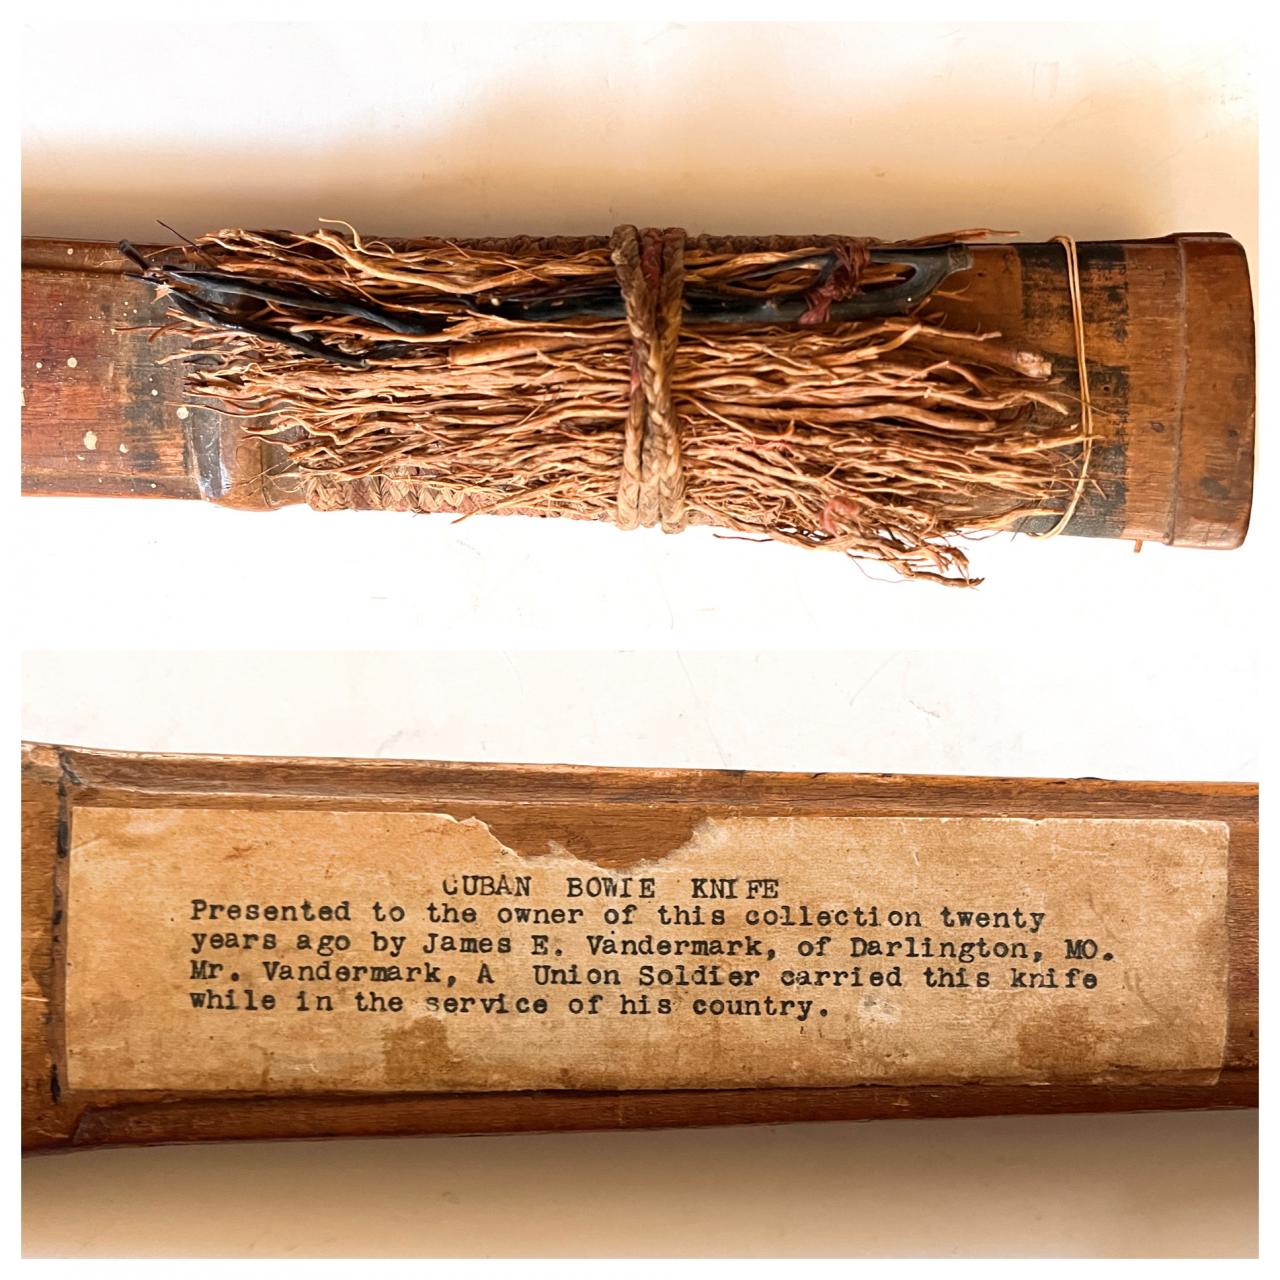 CUBAN BOWIE KNIFE
Presented to the owner of this collection twenty
years ago by James E. Vandermark, of Darlington, MO.
Mr. Vandermark, A Union Soldier carried this knife
while in the service of his country.